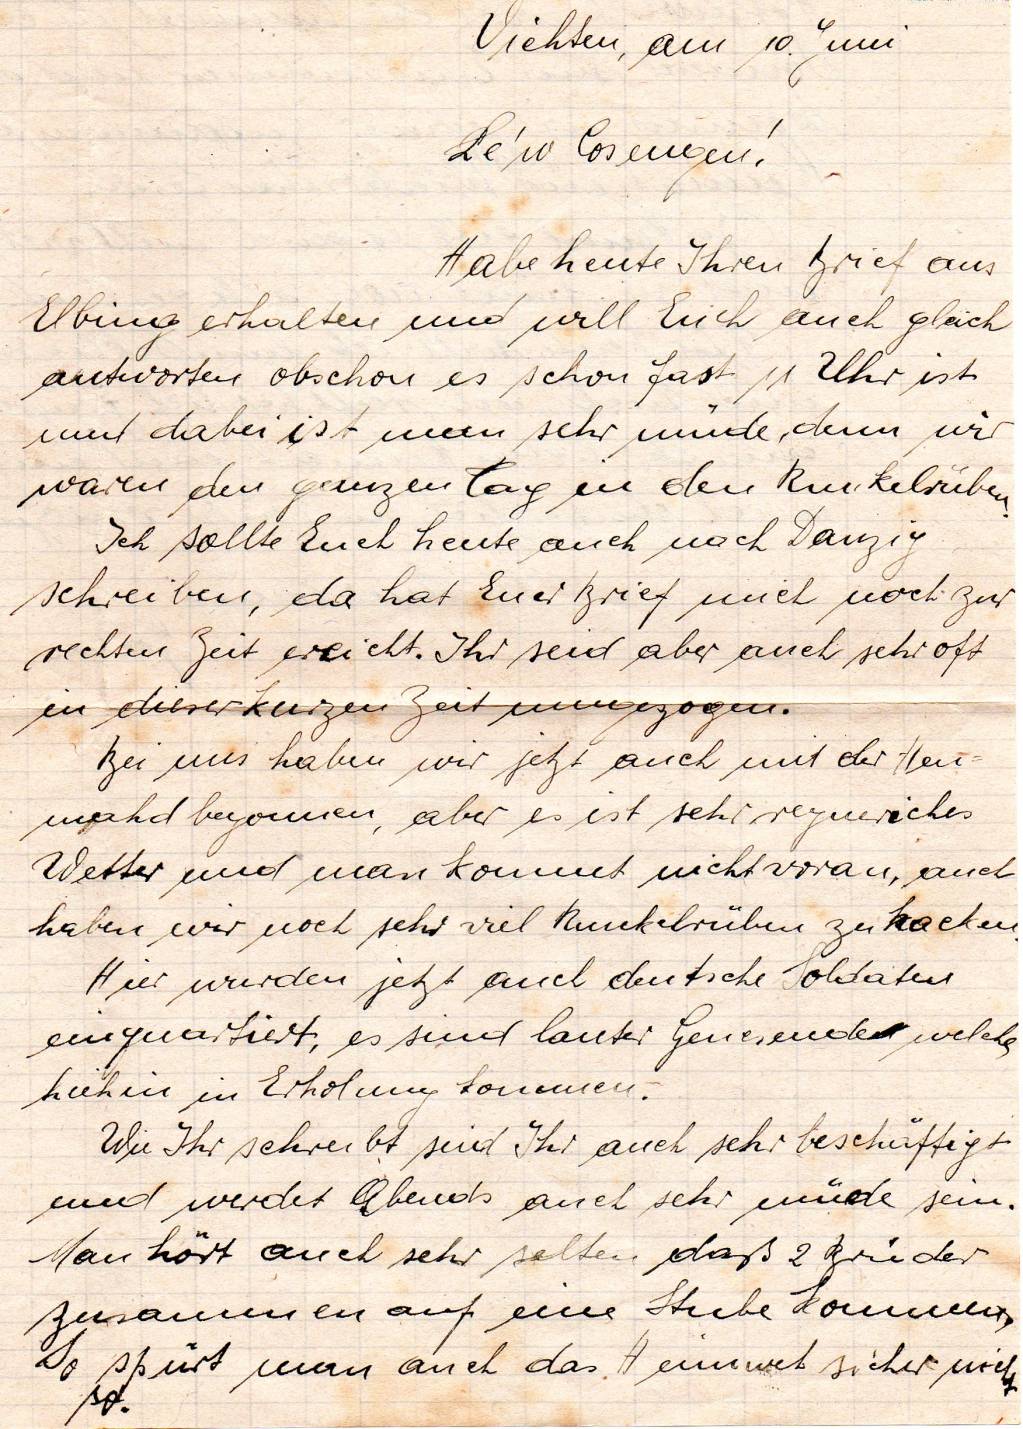 Vichten, am 10. Juni
Lé'w Cosengen!
Habe heute Ihren Brief aus
Elbing erhalten und will Euch auch gleich
antworten obschon es schon fast 11 Uhr ist
und dabei ist man sehr müde, denn wir
waren den ganzen Tag in den Runkelrüben.
Ich sollte Euch heute auch nach Danzig
schreiben, da hat Euer Brief mich noch zur
rechten Zeit ereicht. Ihr seid aber auch sehr oft
in dieser kurzen Zeit umgezogen.
Bei uns haben wir jetzt auch mit der Heu=
mahd begonnen, aber es ist sehr regneriches
Wetter und man kommt nicht voran, auch
haben wir noch sehr viel Runkelrüben zu hacken.
Hier wurden jetzt auch deutsche Soldaten
einquartiert, es sind lauter Genesende welche
hiehin in Erholung kommen.
Wie Ihr schreibt seid Ihr auch sehr beschäftigt
und werdet Abends auch sehr müde sein.
Man hört auch sehr selten daß 2 Brüder
zusammen auf eine Stube kommen,
So spürt man auch das Heimweh sicher nicht
so.